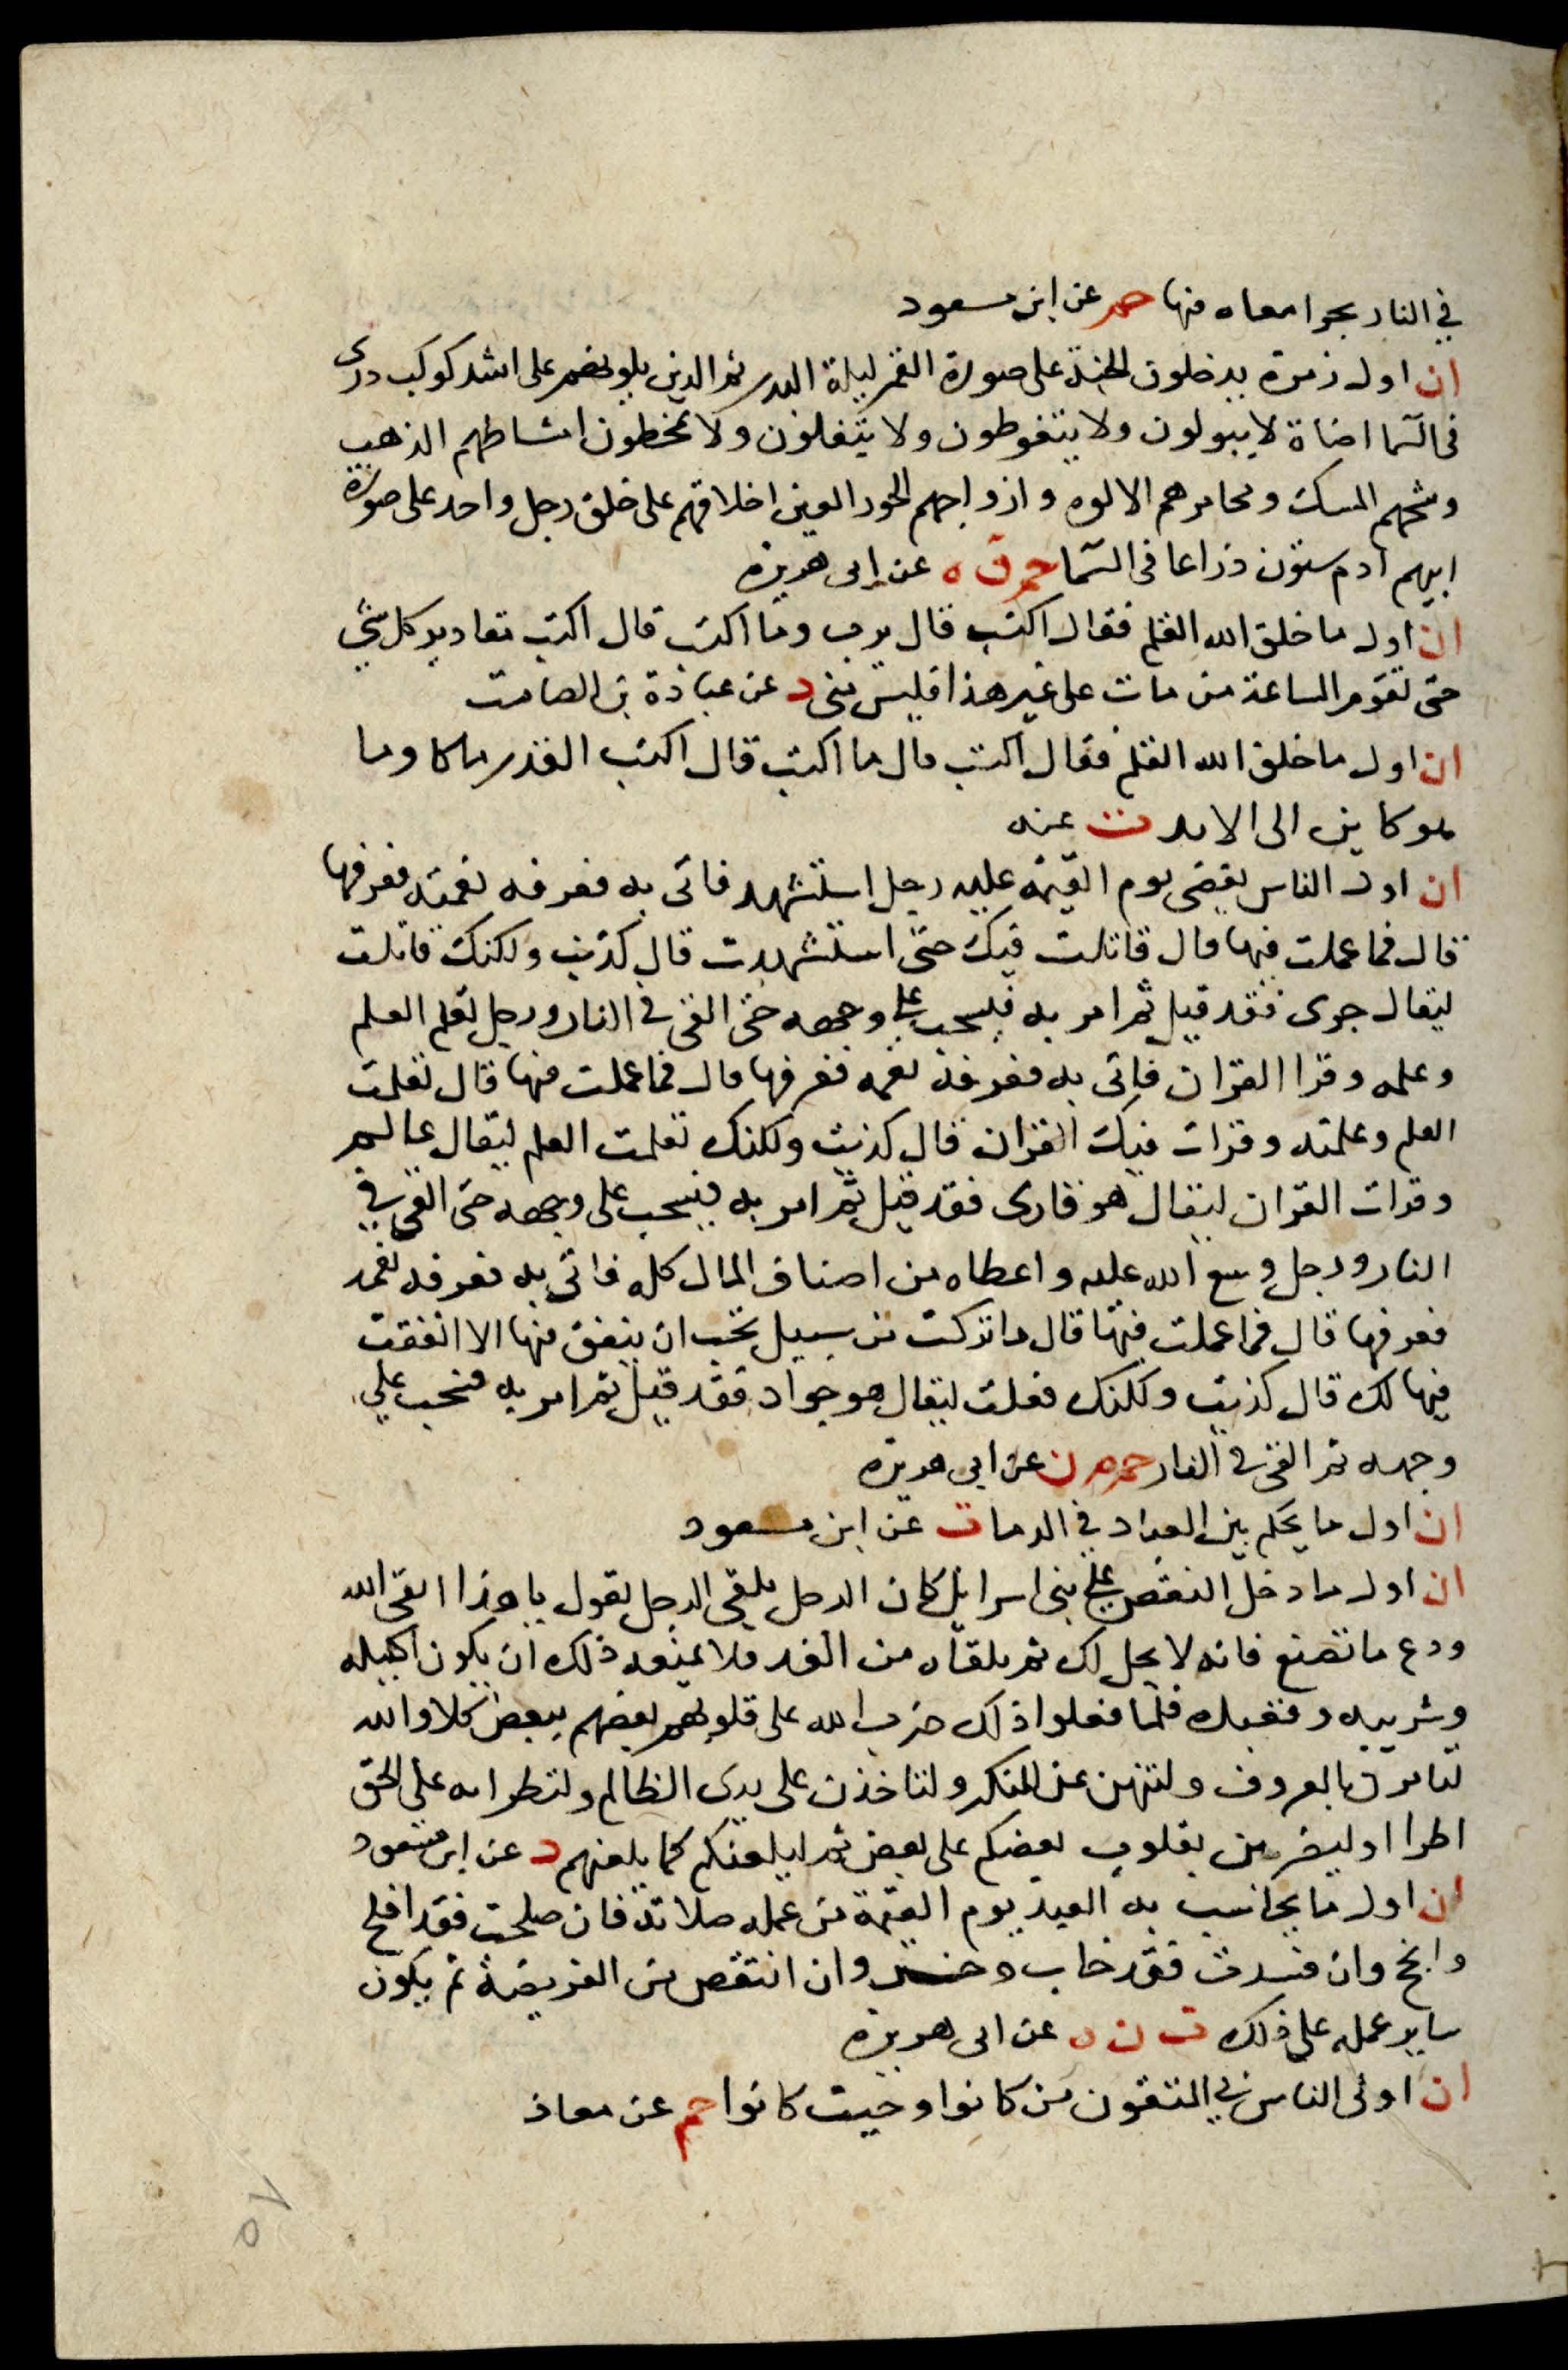 في النار يجر امعاه فيها حم عن ابن مسعود
ان اول زمرة يدخلون الجنة على صورة القمر ليلة البدر ثم الذين يلونهم على اشد كوكب درى
فى السما اضاة لا يبولون ولا يتغوطون ولا يتفلون ولا يمخطون امشاطهم الذهب
ورشحهم المسك ومجامرهم الالوه وازواجهم الحور العين اخلاقهم على خلق رجل واحد على صورة
ابيهم ادم ستون ذراعا فى السما حم ق ه عن ابى هريرة
ان اول ما خلق الله القلم فقال اكتب قال يرب وما اكتب قال اكتب مقادير كل شي
حتى تقوم الساعة من مات على غير هذا فليس منى د عن عبادة بن الصامت
ان اول ما خلق الله القلم فقال اكتب قال ما اكتب قال اكتب القدر ما كا وما
هو كاين الى الابد ت عنه
ان اول الناس يقضى يوم القيمة عليه رجل استشهد فاتى به فعرفه نعمته فعرفها
قال فما عملت فيها قال قاتلت فيك حتى استشهدت قال كذبت ولكنك قاتلت
ليقال جرى فقد قيل ثم امر به فيسحب على وجهه حتى القى فى النار ورجل تعلم العلم
وعلمه وقرا القران فاتى به فعرفه نعمه فعرفها قال فما عملت فيها قال تعلمت
العلم وعلمته وقرات فيك القران قال كذبت ولكنك تعلمت العلم ليقال عالم
وقرات القران ليقال هو قارى فقد قيل ثم امر به فيسحب على وجهه حتى القى في
النار ورجل وسع الله عليه واعطاه من اصناف المال كله فاتى به فعرفه نعمه
فعرفها قال فما عملت فيها قال ما تركت من سبيل تحب ان ينفق فيها الا انفقت
فيها لك قال كذبت ولكنك فعلت ليقال هو جواد فقد قيل ثم امر به فسحب على
وجهه ثم القى فى النار حم م ن عن ابى هريرة
ان اول ما يحكم بين العباد في الدما ت عن ابن مسعود
ان اول ما دخل النقص على بنى اسرايل كان الرجل يلقى الرجل يقول يا هذا اتقى الله
ودع ما تصنع فانه لا يحل لك ثم يلقاه من الغد فلا يمنعه ذلك ان يكون اكيله
وشريبه وقعيده فلما فعلوا ذلك ضرب الله على قلوبهم بعضهم ببعض كلا والله
لتامرن بالمعروف ولتنهن عن المنكر ولتاخذن على يدى الظالم ولتطرانه على الحق
اطرا اوليضربن بقلوب بعضكم على بعض ثم ليلعنكم كما يلعنهم د عن ابن مسعود
ان اول ما يحاسب به العبد يوم القيمة من عمله صلاته فان صلحت فقد افلح
وانجح وان فسدت فقد خاب وخسر وان انتقص من الفريضة ثم يكون
ساير عمله على ذلك ت ن ه عن ابى هريرة
ان اولى الناس بى المتقون من كانوا وحيث كانوا حم عن معاذ